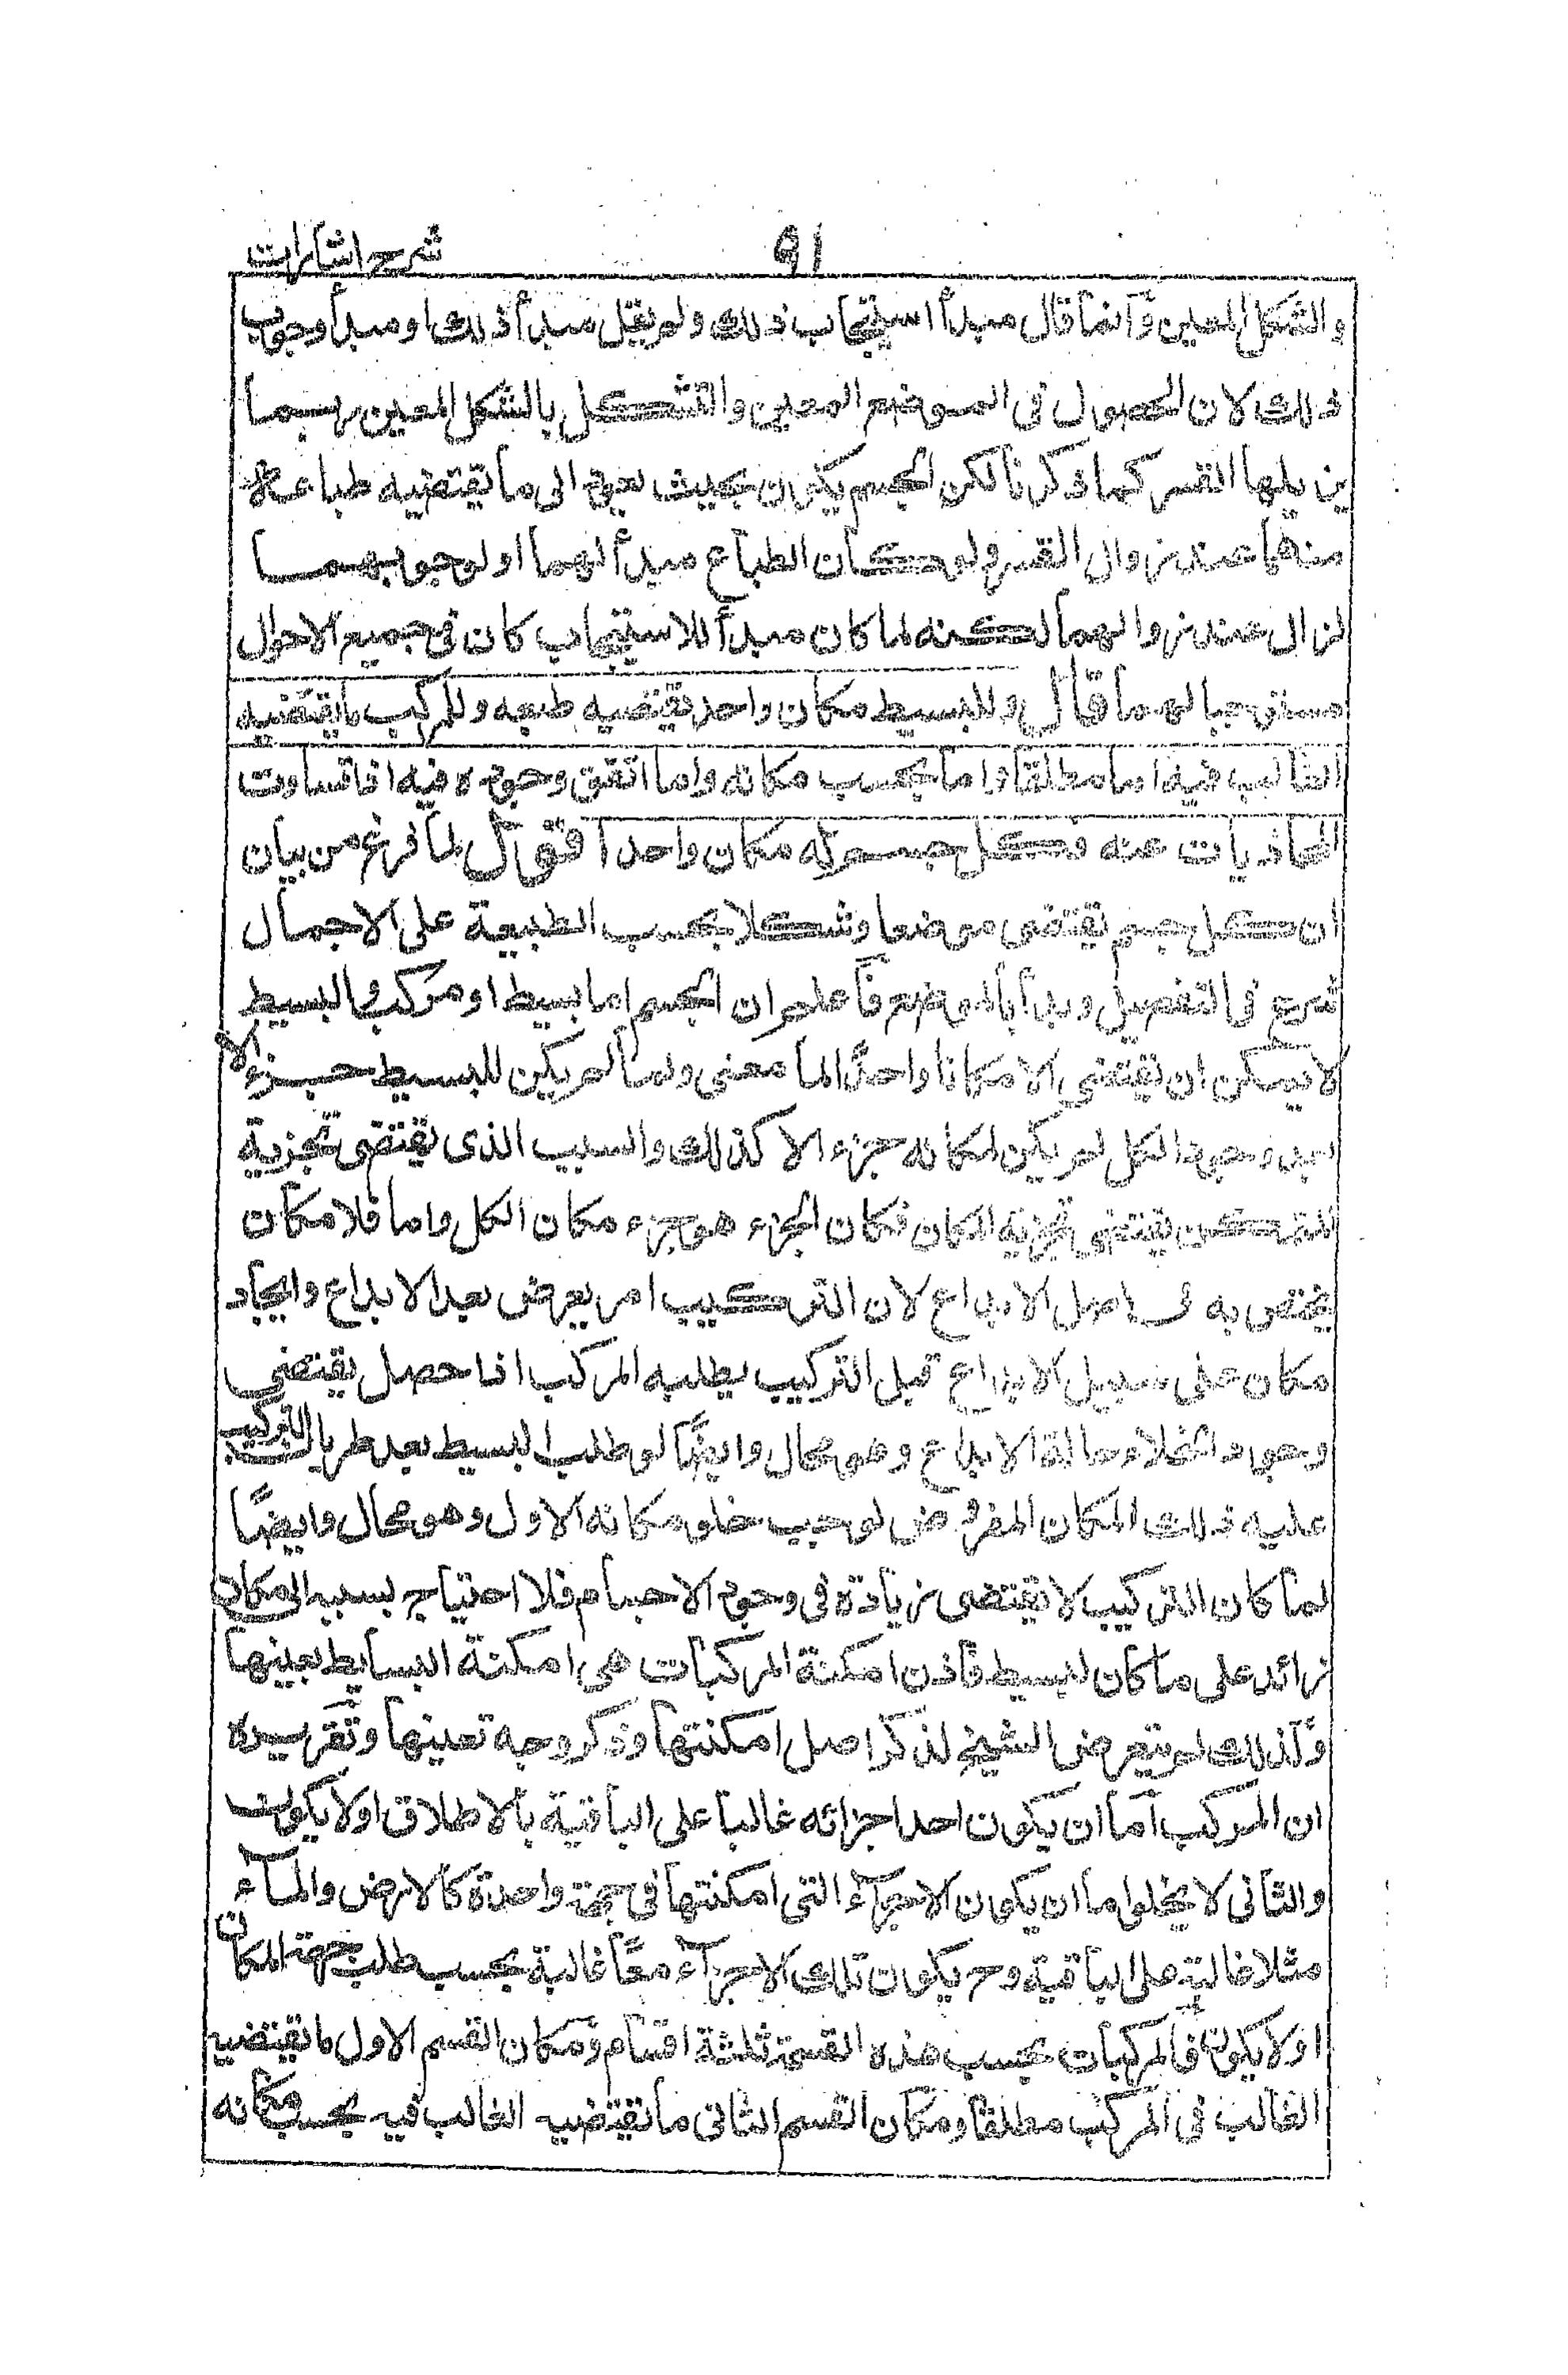 شرح اشارات
٩١
والشكل المعين وانما قال مبدأ استيجاب ذلك ولم يقل مبدأ ذلك او مبدأ وجوب
ذلك لان الحصول فى الموضع المعين والتشكل بالشكل المعين ربما
يزيلها القسر كما ذكرنا لكن الجسم يكون بحيث يعود الى ما يقتضيه طباعه
منهما عند زوال القسر ولو كان الطباع مبدأ لهما او لوجوبهما
لزال عند زوالهما لكنه لما كان مبدأ للاستيجاب كان فى جميع الاحوال
مستوجبا لهما قال وللبسيط مكان واحد يقتضيه طبعه وللمركب ما يقتضيه
الغالب فيه اما مطلقا واما بحسب مكانه واما اتفق وجوده فيه اذا تساوت
المجاذبات عنه فكل جسم له مكان واحد اقول لما فرغ من بيان
ان كل جسم يقتضى موضعا وشكلا بحسب الطبيعة على الاجمال
شرع فى التفصيل وبدأ بالموضع فاعلم ان الجسم اما بسيط او مركب والبسيط
لا يمكن ان يقتضى الا مكانا واحدا لما معنى ولما لم يكن للبسيط جزء الا
بعد وجود الكل لم يكن لمكانه جزء الا كذلك والسبب الذى يقتضى تجزية
المتمكن يقتضى تجزية المكان فكان الجزء هو جزء مكان الكل واما فلا مكان
يختص به فى اصل الابداع لان التركيب امر يعرض بعد الابداع وايجاد
مكان على سبيل الابداع قبل التركيب يطلبه المركب اذا حصل يقتضى
وجود الخلاء حالة الابداع وهو محال وايضا لو طلب البسيط بعد طريان التركيب
عليه ذلك المكان المفروض لوجب خلو مكانه الاول وهو محال وايضا
لما كان التركيب لا يقتضى زيادة فى وجود الاجسام فلا احتياج بسببه الى مكان
زائد على ما كان للبسيط فاذن امكنة المركبات هى امكنة البسايط بعينها
ولذلك لم يتعرض الشيخ لذكر اصل امكنتها وذكر وجه تعينها وتقريره
ان المركب اما ان يكون احد اجزائه غالبا على الباقية بالاطلاق او لا يكون
والثانى لا يخلوا ما ان يكون الاجزآء التى امكنتها فى جهة واحدة كالارض والمآء
مثلا غالبة على الباقية وح يكون تلك الاجزآء معا غالبة بحسب طلب جهة المكان
او لا يكون فالمركبات بحسب هذه القسمة ثلثة اقسام ومكان القسم الاول ما يقتضيه
الغالب فى المركب مطلقا ومكان القسم الثانى ما يقتضيه الغالب فيه بحسب مكانه